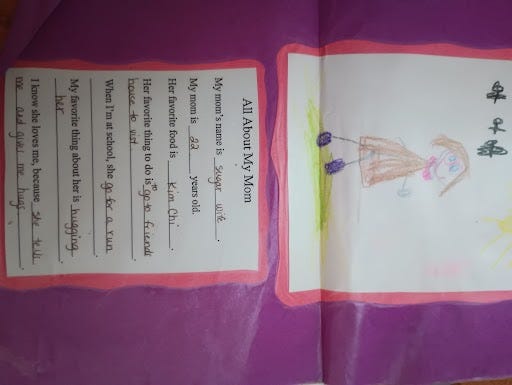 All About My Mom
My mom's name is sugar wife.
My mom is 22 years old.
Her favorite food is Kim Chi.
Her favorite thing to do is to go to friends
house to visit.
When I'm at school, she go for a run
.
My favorite thing about her is hugging
her.
I know she loves me, because she tells
me and give me hugs.